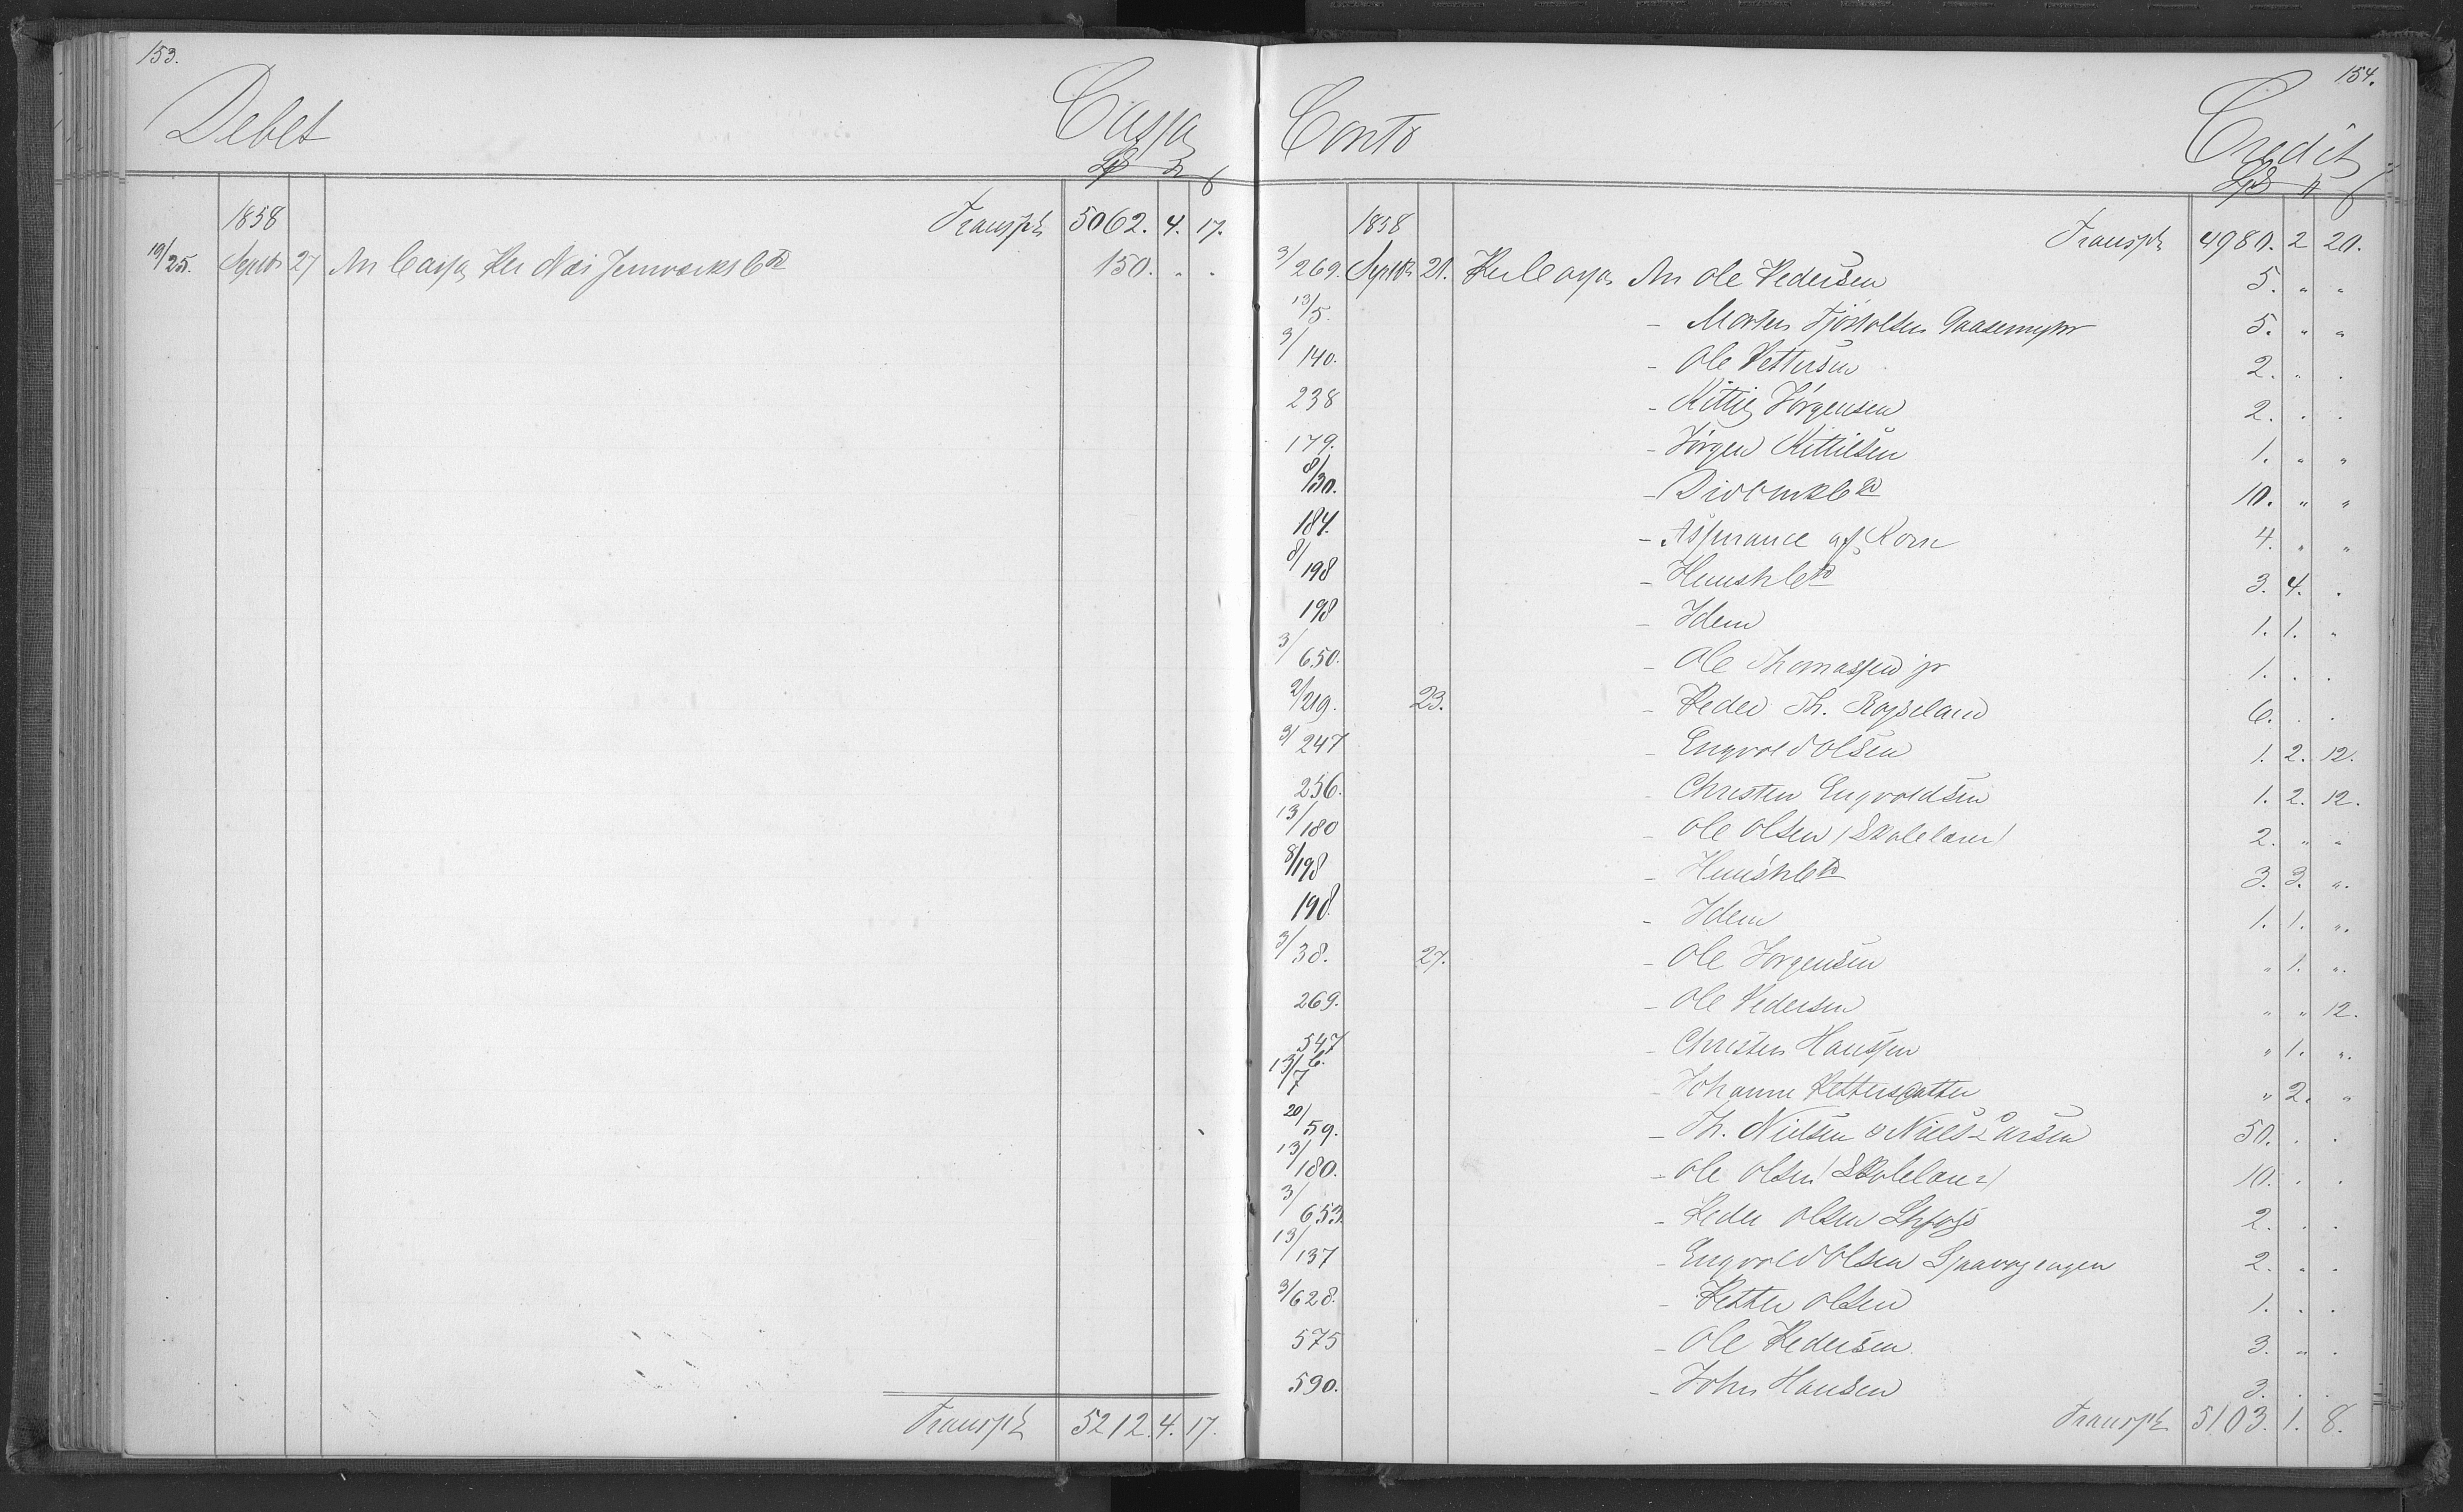 153.
Debet Cassa
1858 Transpt 5062. 4. 17.
19/25. Septbr 27 An Cassa Per Næs Jernværks Cto 150. " "
Transpt 5212. 4. 17.
154.
Conto Credit
1858 Transpt 4980. 2 20.
3/269. Septbr 21. Per Cassa An Ole Pedersen 5. " "
13/5. - Morten Tjøstolsen 5. " "
3/140. - Ole Pettersen 2. " .
238 - Kittil Jørgensen 2. . .
179. - Jørgen Kittilsen 1. " "
8/30. - Div Omk Cto 10. " "
184. - Assurance af Korn 4. " "
8/198 - Huush Cto 3. 4. .
198 - Idem 1. 1. "
3/650. - Ole Thomassen jr 1. . .
2/219. 23. - Peder Th. Røiseland 6. . .
3/247 - Engvold Olsen 1. 2. 12.
256. - Christen Engvoldsen 1. 2. 12.
13/180 - Ole Olsen (Skolelærer) 2. " "
8/198 - Huush Cto 3. 3. ".
198. - Idem 1. 1. ".
3/38. 27. - Ole Jørgensen " 1. ".
269. - Ole Pedersen " " 12.
547 - Christen Hanssen " 1. ".
13/6./7 - Johanne Pettersdatter " 2. "
20/59. - Th. Nielsen & Niels Larsen 50. . .
13/180. - Ole Olsen (Skolelær) 10. . .
3/653. - Peder Olsen 2. . .
13/137 - Engvold Olsen 2. . .
3/628. - Petter Olsen 1. . .
575 - Ole Pedersen 3. " .
590. - John Hansen 3. . .
Transpt 5103. 1. 8.